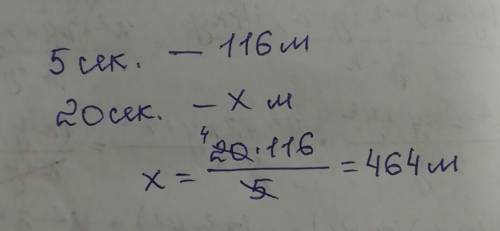 5 сек. — 116 м
20 сек. — х м
х = 4 20·116 / 5 = 464 м